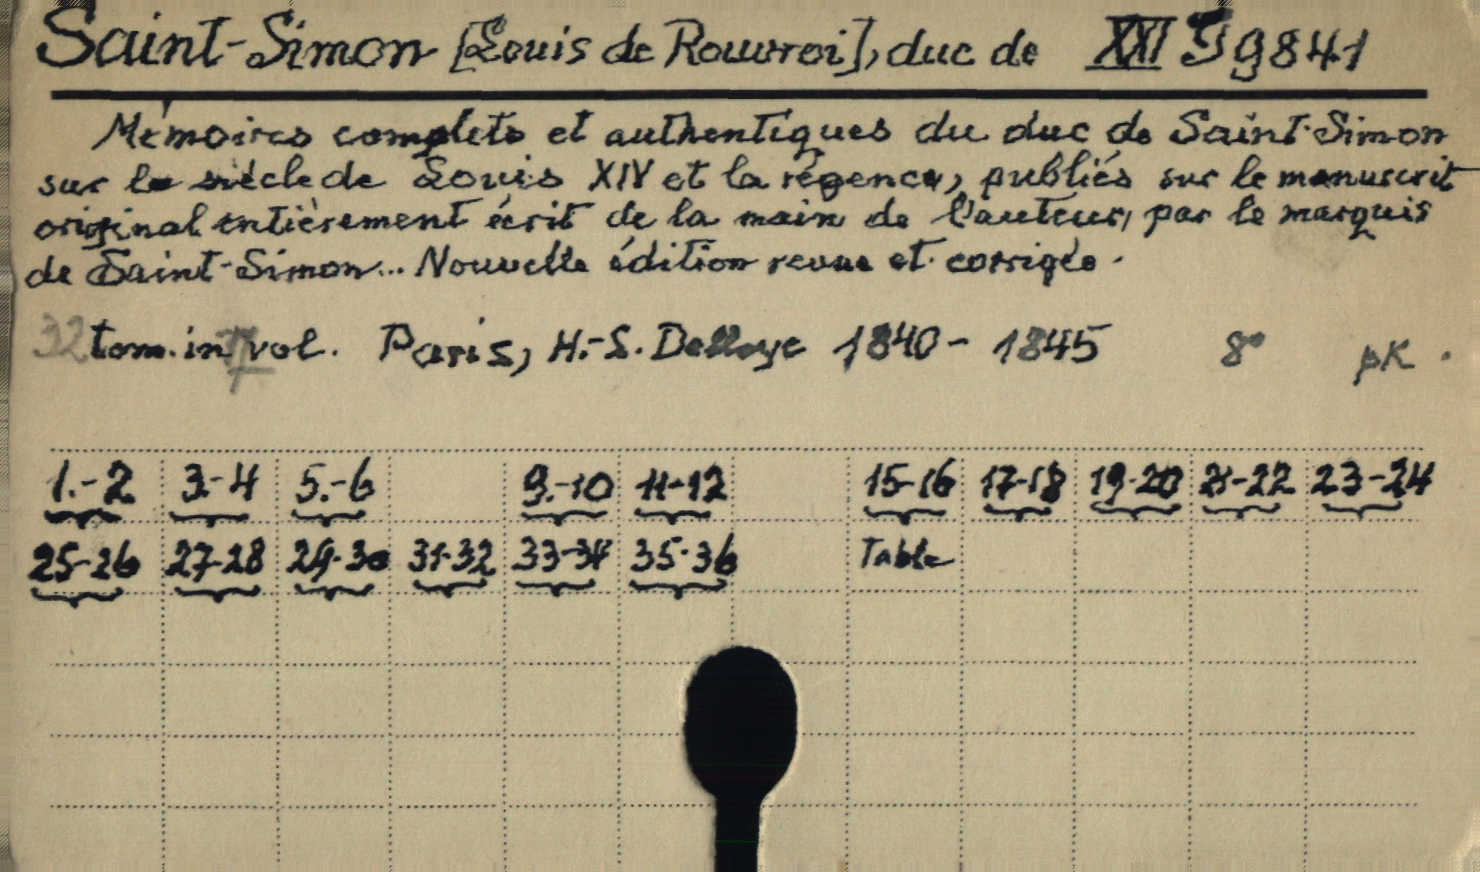 Saint-Simon [Louis de Rouvroi], duc de XXI G 9841
Mémoires complets et authentiques du duc de Saint-Simon
sur le siècle de Louis XIV et la régence, publiés sur le manuscrit
original entièrement écrit de la main de l'auteur, par le marquis
de Saint-Simon... Nouvelle édition revue et corrigée.
32 tom. in 17 vol. Paris, H.-L. Delloye 1840-1845 8° pK.
1.-2 3.-4 5.-6 9.-10 11-12 15-16 17-18 19-20 21-22 23-24
25-26 27-28 29-30 31-32 33-34 35-36 Table